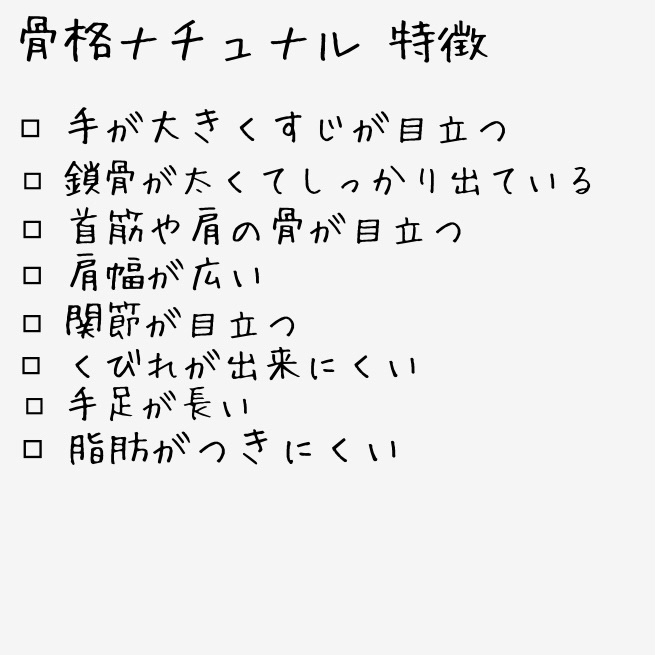 骨格ナチュナル 特徴
□ 手が大きくすじが目立つ
□ 鎖骨が太くてしっかり出ている
□ 首筋や肩の骨が目立つ
□ 肩幅が広い
□ 関節が目立つ
□ くびれが出来にくい
□ 手足が長い
□ 脂肪がつきにくい